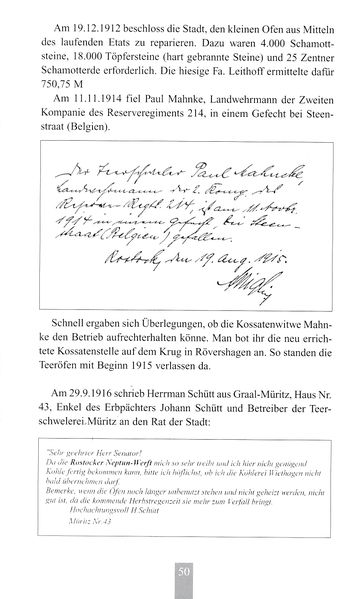 Am 19.12.1912 beschloss die Stadt, den kleinen Ofen aus Mitteln
des laufenden Etats zu reparieren. Dazu waren 4.000 Schamott-
steine, 18.000 Töpfersteine (hart gebrannte Steine) und 25 Zentner
Schamotterde erforderlich. Die hiesige Fa. Leithoff ermittelte dafür
750,75 M
Am 11.11.1914 fiel Paul Mahnke, Landwehrmann der Zweiten
Kompanie des Reserveregiments 214, in einem Gefecht bei Steen-
straat (Belgien).
Der Teerschweler Paul Mahncke,
Landwehrmann der 2. Komp. des
Reserve Regts. 214, ist am 11. Novbr.
1914 in einem Gefecht bei Steen-
straat (Belgien) gefallen.
Rostock, den 19. Aug. 1915.
Schnell ergaben sich Überlegungen, ob die Kossatenwitwe Mahn-
ke den Betrieb aufrechterhalten könne. Man bot ihr die neu errich-
tete Kossatenstelle auf dem Krug in Rövershagen an. So standen die
Teeröfen mit Beginn 1915 verlassen da.
Am 29.9.1916 schrieb Herrman Schütt aus Graal-Müritz, Haus Nr.
43, Enkel des Erbpächters Johann Schütt und Betreiber der Teer-
schwelerei.Müritz an den Rat der Stadt:
"Sehr geehrter Herr Senator!
Da die Rostocker Neptun-Werft mich so sehr treibt und ich hier nicht genügend
Kohle fertig bekommen kann, bitte ich höflichst, ob ich die Köhlerei Wiethagen nicht
bald übernehmen darf.
Bemerke, wenn die Öfen noch länger unbenutzt stehen und nicht geheizt werden, nicht
gut ist, da die kommende Herbstregenzeit sie mehr zum Verfall bringt.
Hochachtungsvoll H.Schütt
Müritz Nr.43
50